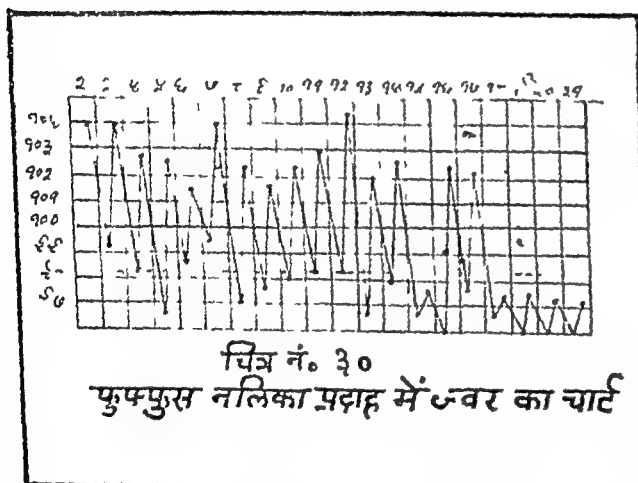 २ ३ ४ ५ ६ ७ ८ ९ १० ११ १२ १३ १४ १५ १६ १७ २१
१०३
१०२
१०१
१००
९९
९७
चित्र नं० ३०
फुफ्फुस नलिका प्रदाह में ज्वर का चार्ट